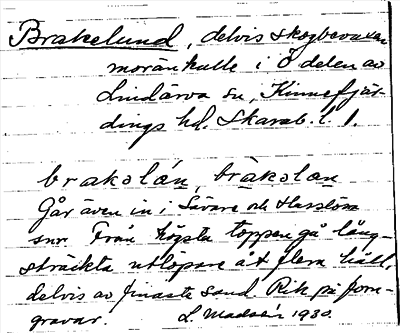 Brakelund, delvis skogbevuxen
moränkulle i Ö delen av
Lindärva sn, Kinnefjär-
dings hd. Skarab. l. 1.
brakslán, bräkslan
Går även in i Sävare och Harslösa
snr. Från högsta toppen gå lång-
sträckta utlöpare åt flera håll,
delvis av finaste sand. Rik på forn-
gravar. L. Madsén 1930.